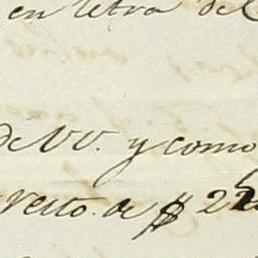 en letra de
de VV. y como
resto. de $ 22